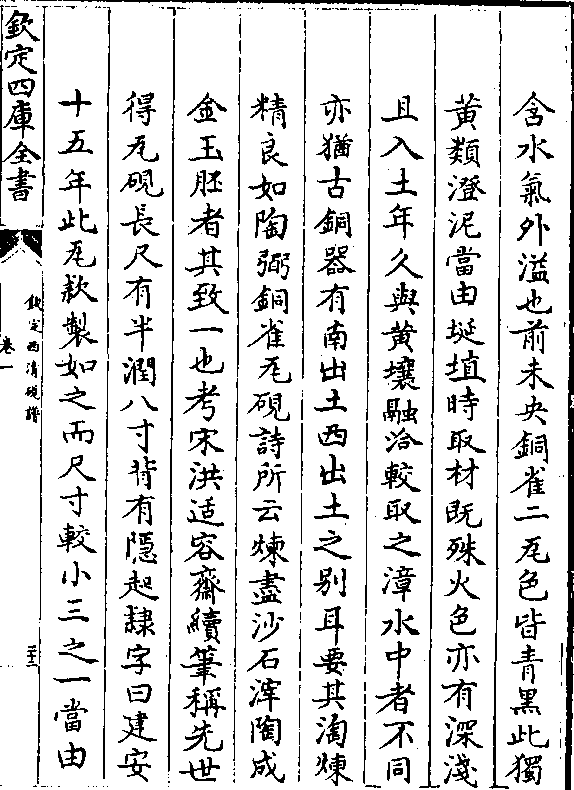 含水氣外溢也前未央銅雀二瓦色皆青黑此獨
黄類澄泥當由埏埴時取材既殊火色亦有深淺
且入土年久與黄壤融洽較取之漳水中者不同
亦猶古銅器有南出土西出土之别耳要其淘煉
精良如陶弼銅雀瓦硯詩所云煉盡沙石滓陶成
金玉胚者其致一也考宋洪适容齋續筆稱先世
得瓦硯長尺有半濶八寸背有隱起隸字曰建安
十五年此瓦款製如之而尺寸較小三之一當由
欽定四庫全書
欽定西清硯譜
卷一